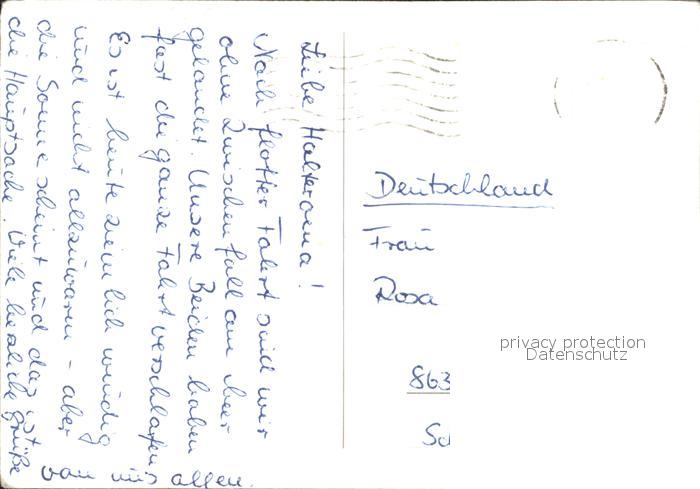 Liebe Halteroma!
Nach flotter Fahrt sind wir
ohne Zwischenfall am Meer
gelandet. Unsere Beiden haben
fast die ganze Fahrt verschlafen
Es ist heute ziemlich windig
und nicht allzuwarm - aber
die Sonne scheint und das ist
die Hauptsache. Viele herzliche Grüße
von uns allen.
Deutschland
Frau
Rosa
863
privacy protection
Datenschutz